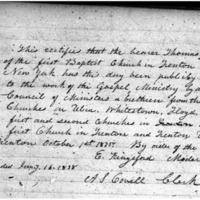 This certifies that the bearer Thomas
of the first Baptist Church in Trenton
New York has this day been publicly
to the work of the Gospel Ministry by a
Council of Ministers & brethren from the
Churches in Utica, Whitestown, Floyd
first and second Churches in
first Church in Trenton and Trenton
Trenton October 1st By order of the
E. Kingsford Moder
ded Jany. 16. 1838
A. S. Clerk